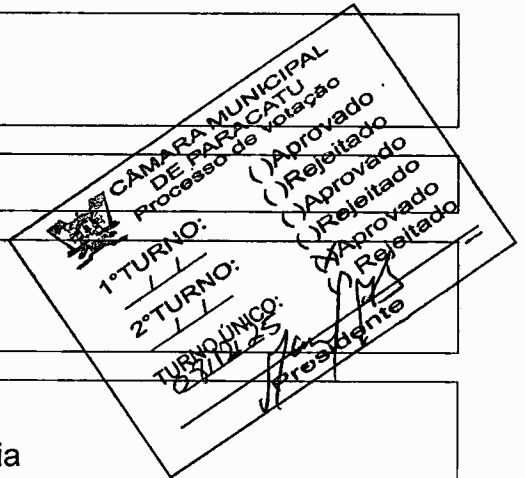 CÂMARA MUNICIPAL
DE PARACATU
Processo de votação
1º TURNO: ( )Aprovado
/ / ( )Rejeitado
2º TURNO: ( )Aprovado
/ / ( )Rejeitado
TURNO ÚNICO: (X)Aprovado
( )Rejeitado
Presidente
ia